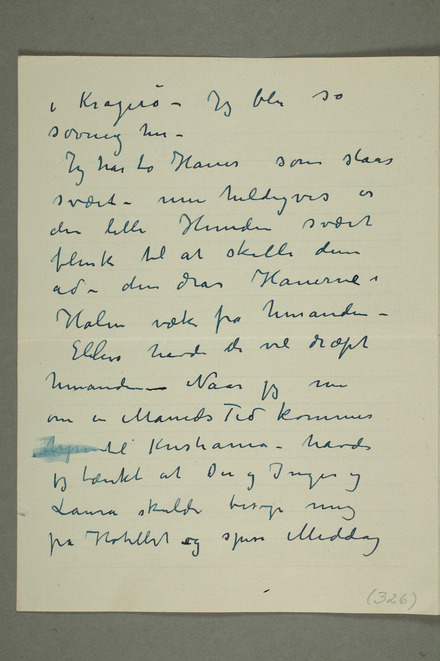 i Kragerø – Jeg ble så
søvnig her –
Jeg har to Haner som slaas
svært – men heldigvis er
den lille Hunden svært
flink til at skille dem
ad – den drar Hanerne i
Halen væk fra hinanden –
Ellers havde de vel dræpt
hinanden – Naar jeg nu
om en Maaneds Tid kommer
til Kristiania – havde
jeg tænkt at Du og Inger og
Laura skulde besøge mig
på Hotellet og spise Middag
(326)